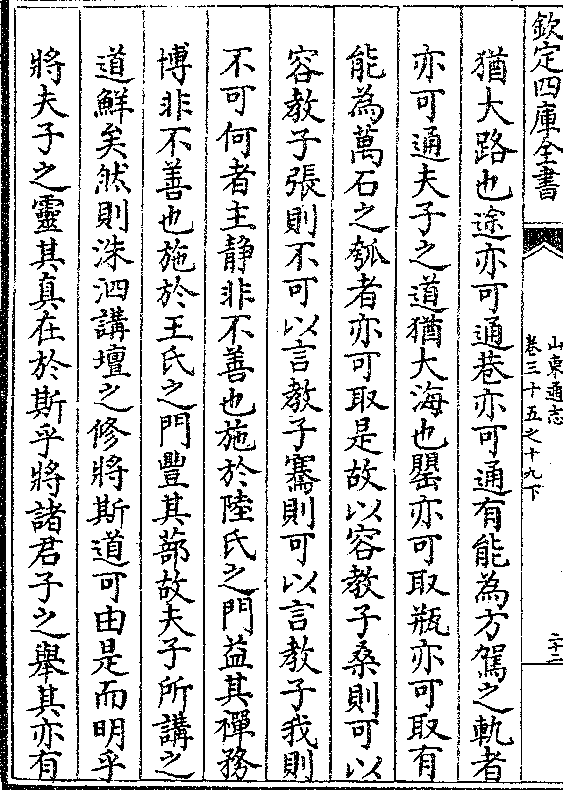 欽定四庫全書
山東通志
卷三十五之十九下
二十二
猶大路也途亦可通巷亦可通有能為方駕之軌者
亦可通夫子之道猶大海也罌亦可取瓶亦可取有
能為萬石之瓠者亦可取是故以容教子桑則可以
容教子張則不可以言教子騫則可以言教子我則
不可何者主静非不善也施於陸氏之門益其禪務
博非不善也施於王氏之門豐其蔀故夫子所講之
道鮮矣然則洙泗講壇之修將斯道可由是而明乎
將夫子之靈其真在於斯乎將諸君子之舉其亦有